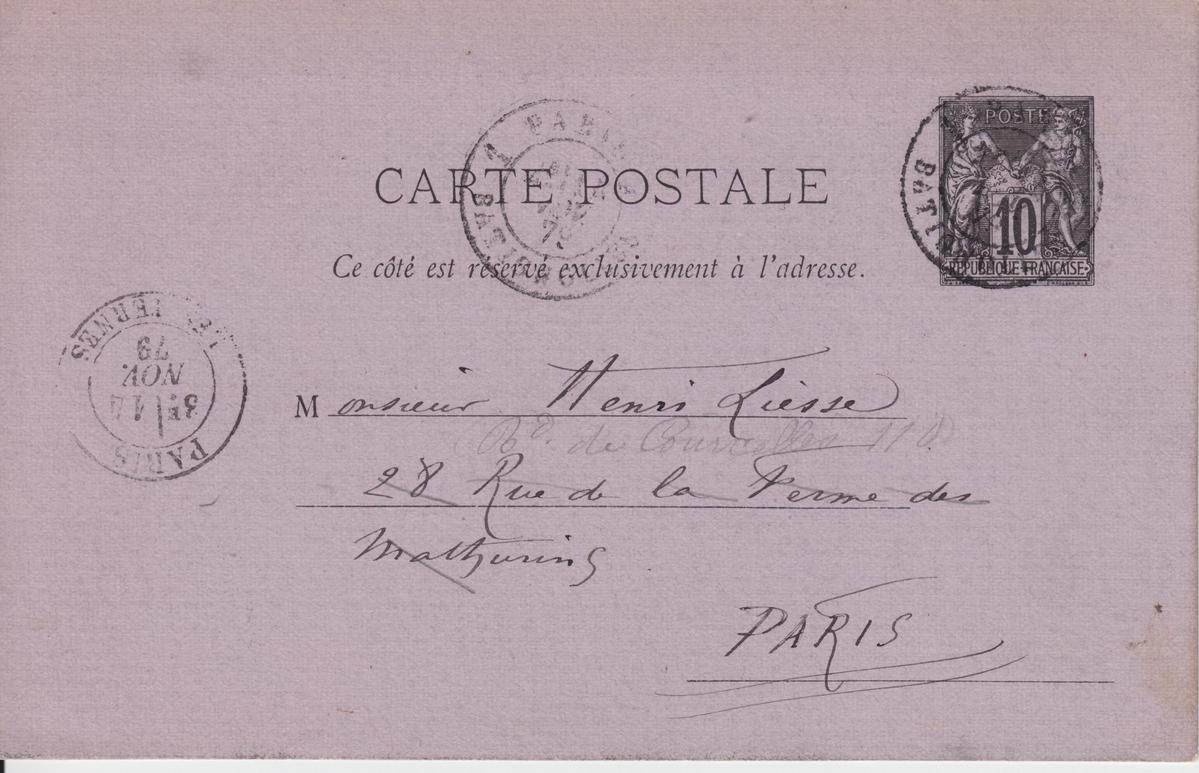 POSTE
10
REPUBLIQUE FRANÇAISE
PARIS
BATIGNOLLES
79
CARTE POSTALE
Ce côté est réservé exclusivement à l'adresse.
PARIS
3E 14
NOV.
79
LES TERNES
Monsieur Henri Liesse
Bd. de Courcelles 110
28 Rue de la Ferme des
Mathurins
PARIS